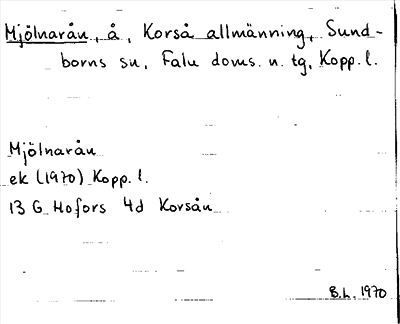 Mjölnarån, å, Korså allmänning, Sund-
borns sn, Falu doms. n. tg, Kopp. l.
Mjölnarån
ek (1970) Kopp. l.
13 G Hofors 4d Korsån
B.L. 1970